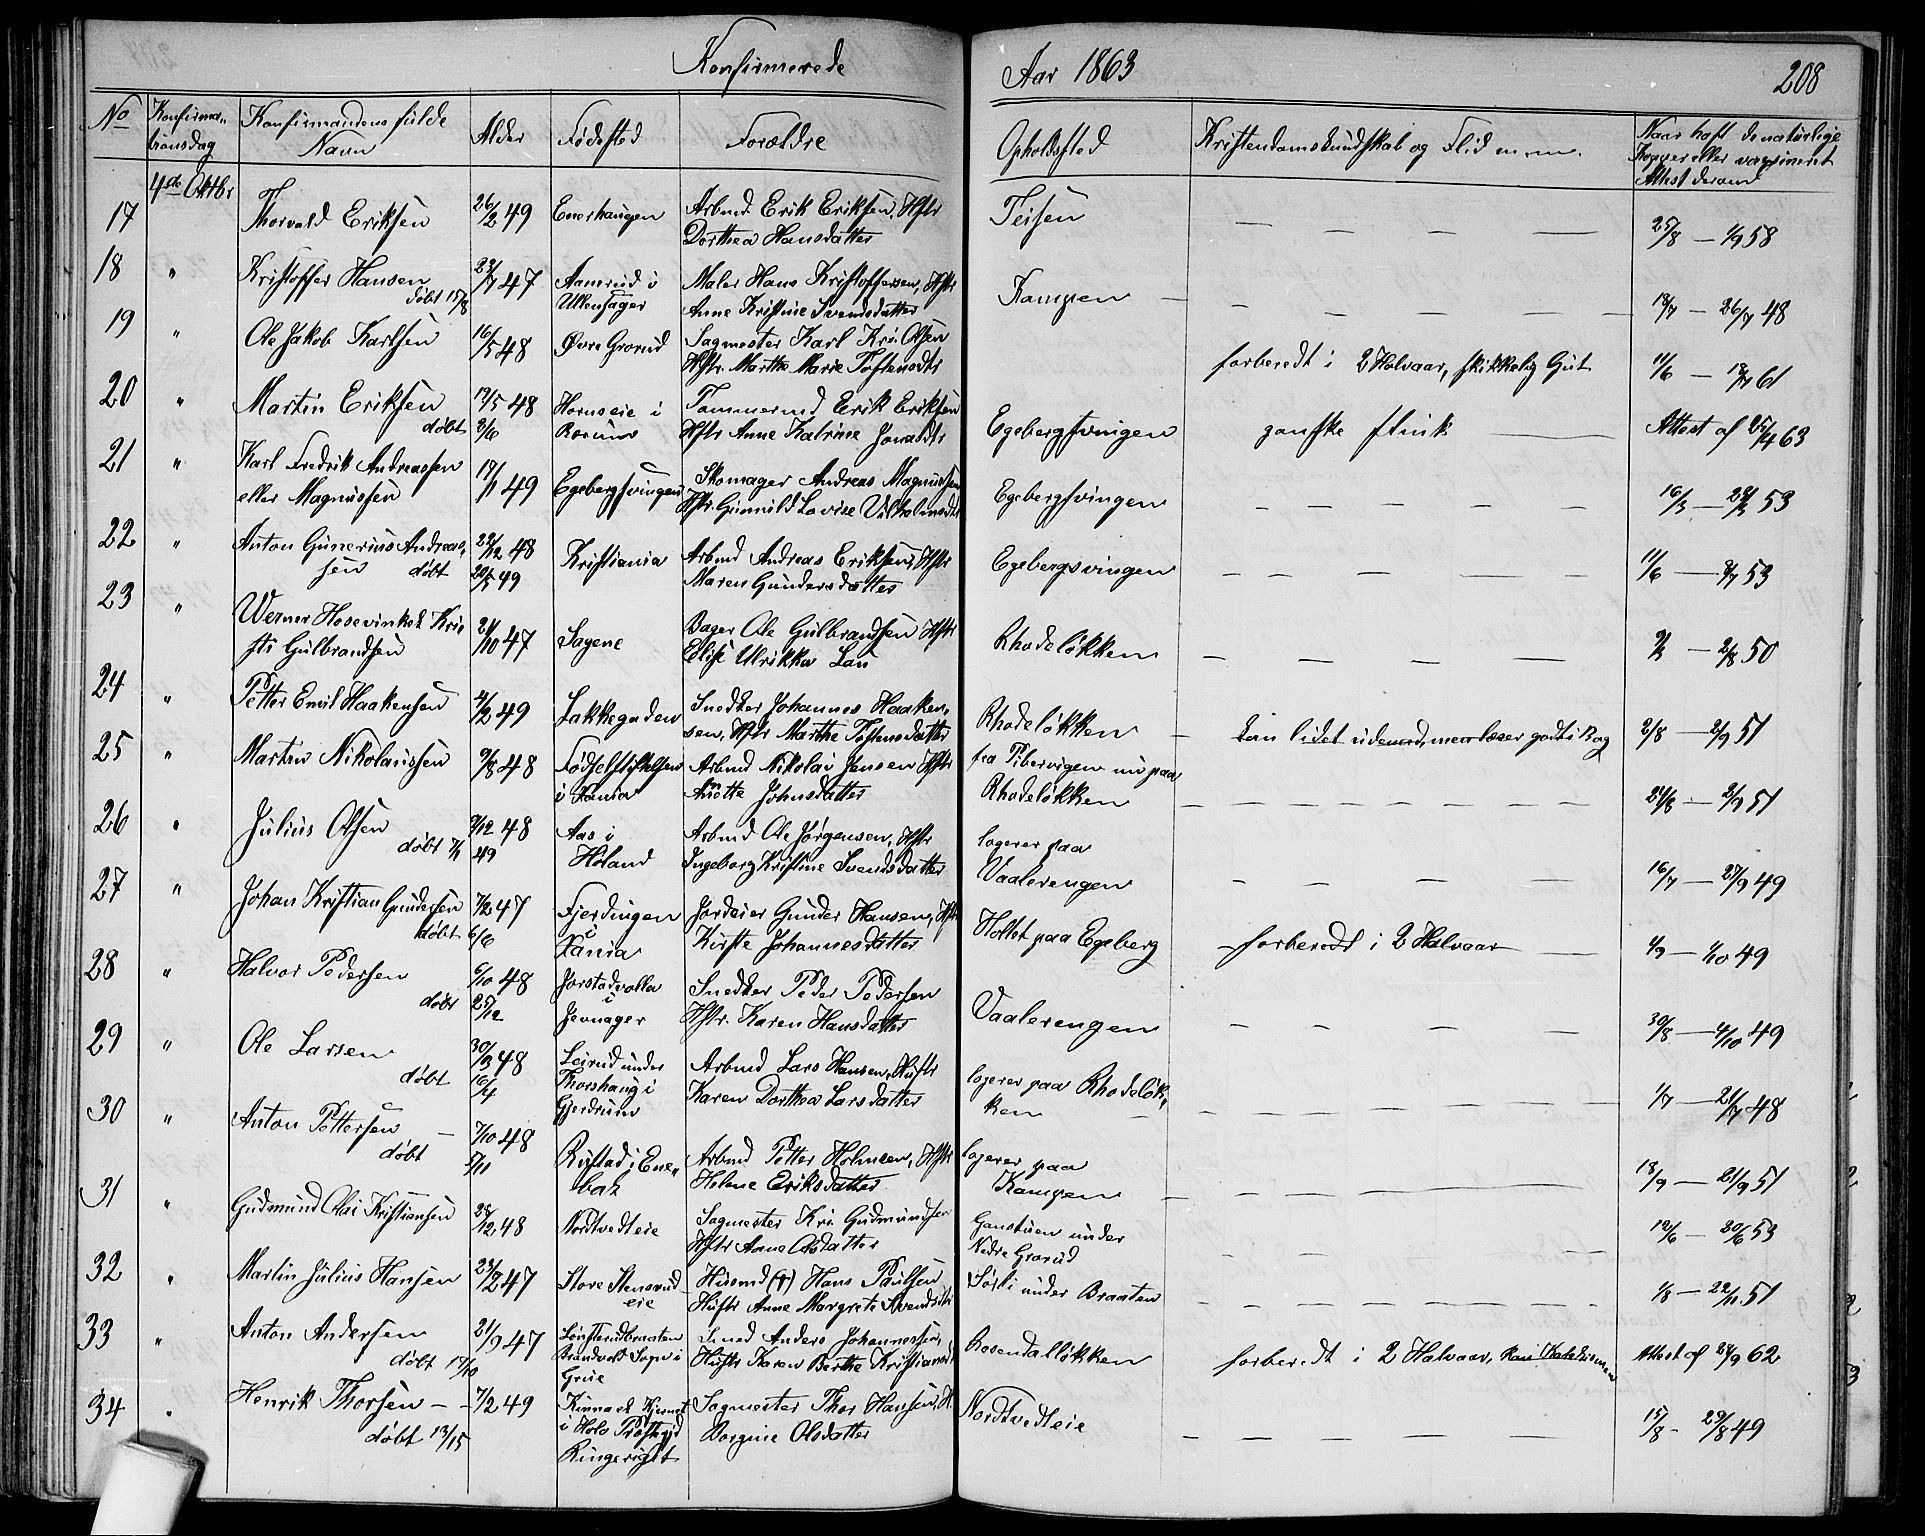 Konfirmerede
Aar 1863
208
No
Konfirma-
tionsdag
Konfirmandens fulde
Navn
Alder
Fødested
Forældre
Opholdssted
Kristendomskundskab og Flid m.m.
Naar haft de naturlige
Kopper eller vaxineret
Attest derom
4de Oktbr
17
Thorvald Eriksen
26/2 49
Enerhaugen
Arbmd Erik Eriksen, Hstr
Dorthea Hansdatter
Teisen
25/8 — 1/9 58
18 "
Kristoffer Hansen
døbt 15/8
23/7 47
Aamrud i
Ullensager
Maler Hans Kristoffersen, Hstr
Anne Kristine Svendsdatter
Kampen
18/7 — 26/7 48
19 "
Ole Jakob Karlsen
16/5 48
Øvre Grorud
Sagmester Karl Kri. Olsen
Hstr. Marthe Marie Tostensdtr
forberedt i 2 Halvaar, skikkelig Gut
11/6 — 18/7 61
20 "
Martin Eriksen
døbt
19/5 48
2/6
Hornseie i
Bærums
Tømmermd Erik Eriksen
Hstr Anne Katrine Jonasdtr
Egebergsvingen
ganske flink
Attest af 25/4 63
21 "
Karl Fredrik Andreassen
eller Magnussen
19/1 49
Egebergsvingen
Skomager Andreas Magnussen
Hstr. Gunnild Lovise Vilhelmsdtr
Egebergsvingen
16/3 — 28/3 53
22 "
Anton Gunerius Andreas-
sen døbt
22/12 48
20/5 49
Kristiania
Arbmd Andreas Eriksen, Hstr
Maren Gundersdatter
Egebergsvingen
11/6 — 8/7 53
23 "
Werner Hosevinkel Kri-
sti Gulbrandsen
21/10 47
Sagene
Bager Ole Gulbrandsen Hstr
Elise Ulrikka Lau
Rhodeløkken
— 2/8 50
24 "
Petter Emil Haakensen
4/2 49
Lakkegaden
Snedker Johannes Haaken-
sen, Hstr Marthe Tostensdatter
Rhodeløkken
kan lidet udenad, men læser godt i Bog
2/8 — 2/9 51
25 "
Martin Nikolaissen
9/8 48
Fødselsstiftelsen
i Xania
Arbmd Nikolai Jensen Hstr
Anette Johnsdatter
fra Pibervigen nu paa
Rhodeløkken
24/8 — 2/9 51
26 "
Julius Olsen
døbt 7/1
9/12 48
49
Aas i
Høland
Arbmd Ole Jørgensen, Hstr
Ingeborg Kristine Svendsdatter
logerer paa
Vaalerengen
16/7 — 27/9 49
27 "
Johan Kristian Gundersen
døbt
7/2 47
6/6
Fjerdingen
i
Xania
Jordeier Gunder Hansen, Hstr
Kirste Johannesdatter
Holtet paa Egeberg
forberedt i 2 Halvaar
1/9 — 1/10 49
28 "
Halvor Pedersen
døbt
6/10 48
25/12
Jorstadvolla
i
Jevnager
Snedker Peder Pedersen
Hstr. Karen Hansdatter
Vaalerengen
30/8 — 4/10 49
29 "
Ole Larsen
døbt
30/3 48
16/4
Leirud under
Thorshaug i
Gjerdrum
Arbmd Lars Hansen, Hustr
Karen Dorthea Larsdatter
logerer paa Rhodeløk-
ken
1/7 — 21/7 48
30 "
Anton Pettersen
døbt
7/10 48
5/11
Ristad i Ene-
bak
Arbmd Petter Holmsen, Hstr
Helene Eriksdatter
logerer paa
Kampen
18/9 — 21/9 51
31 "
Gudmund Olai Kristiansen
28/12 48
Nordtvedteie
Sagmester Kri. Gudmundsen
Hstr Anne Olsdatter
Ganstuen under
Nedre Grorud
12/6 — 20/6 53
32 "
Martin Julius Hansen
23/2 47
Store Stensrud-
eie
Husmd (†) Hans Paulsen
Hustr Anne Margrete Svendsdtr
Sørli under Braaten
1/8 — 22/11 51
33 "
Anton Andersen
døbt 17/10
21/9 47
Lønstadbraaten
Brandvold Sogn i
Grue
Smed Anders Johannessen,
Hustr Karen Berthe Kristiansdtr
Rosendalløkken
forberedt i 2 Halvaar, kan Katekismen
Attest af 28/9 62
34 "
Henrik Thorsen
døbt 13/15
7/2 49
i Hols Prestegjd
Ringerigst
Sagmester Thor Hansen, H.
Borgine Olsdatter
Nordtvedteie
15/8 - 29/8 49